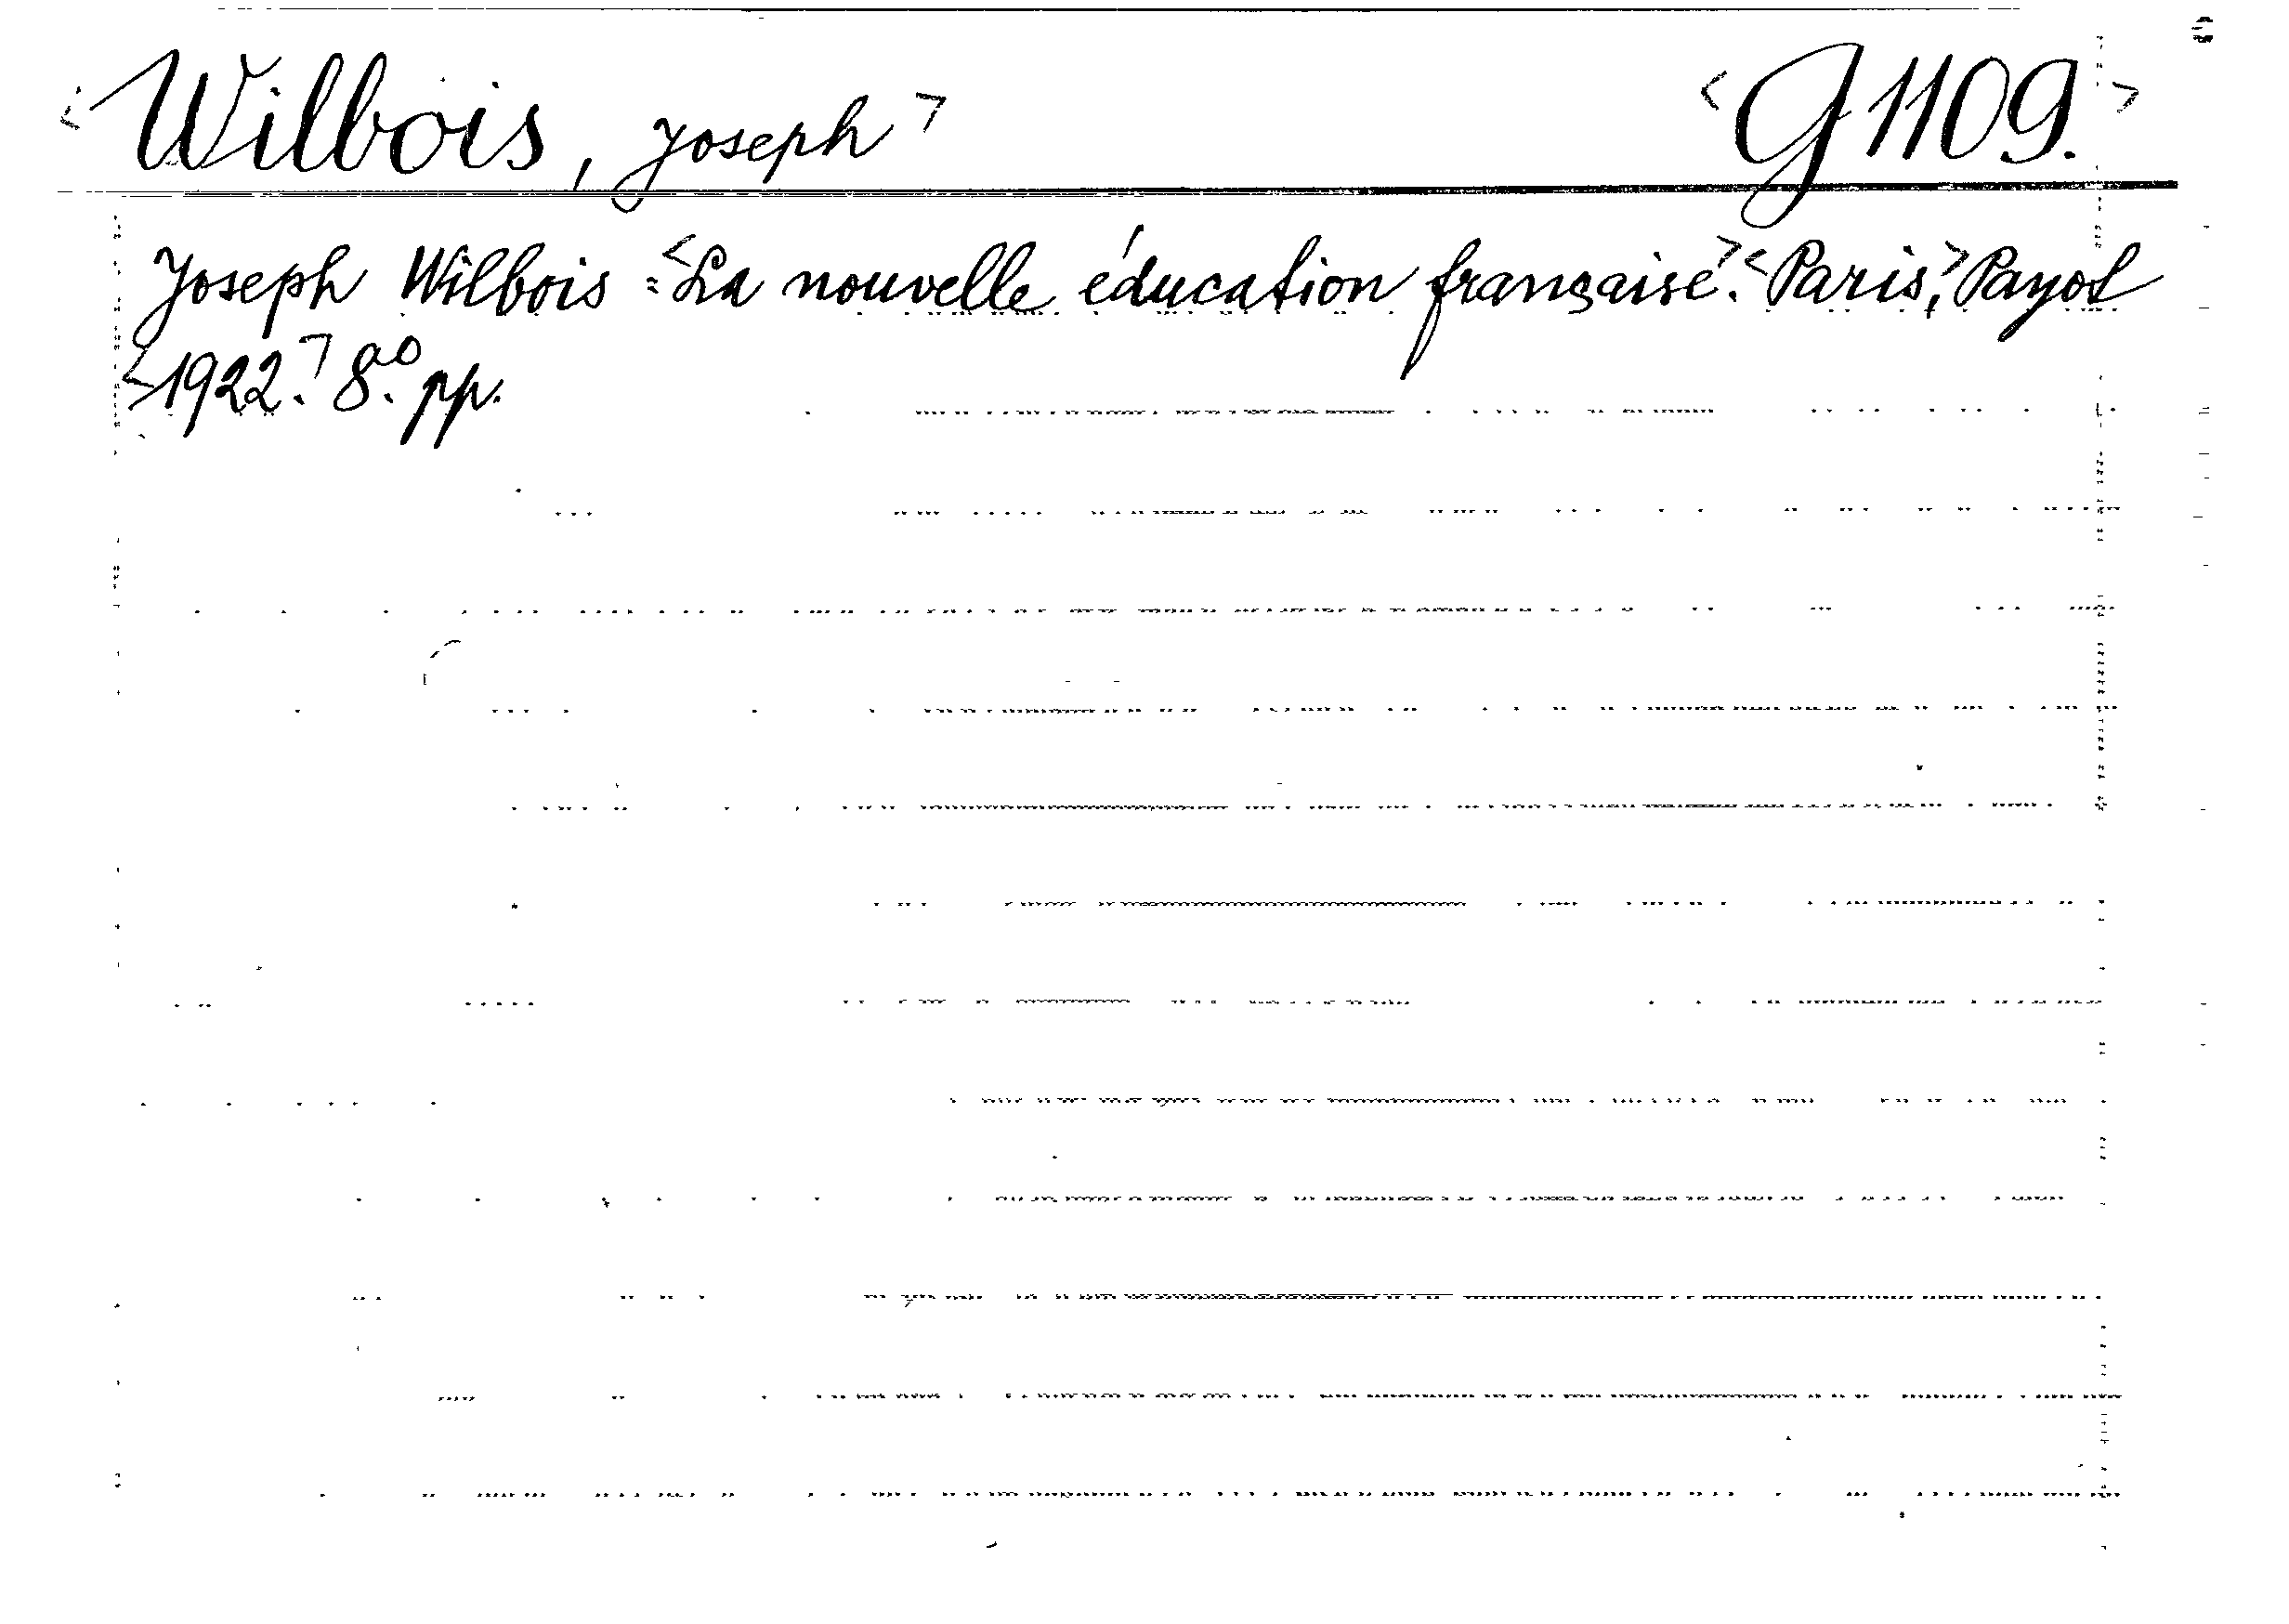 <Wilbois, Joseph> <G 1109.>
Joseph Wilbois :<La nouvelle éducation française>. <Paris,> Payot
<1922.> 8ᵃ⁰. pp.